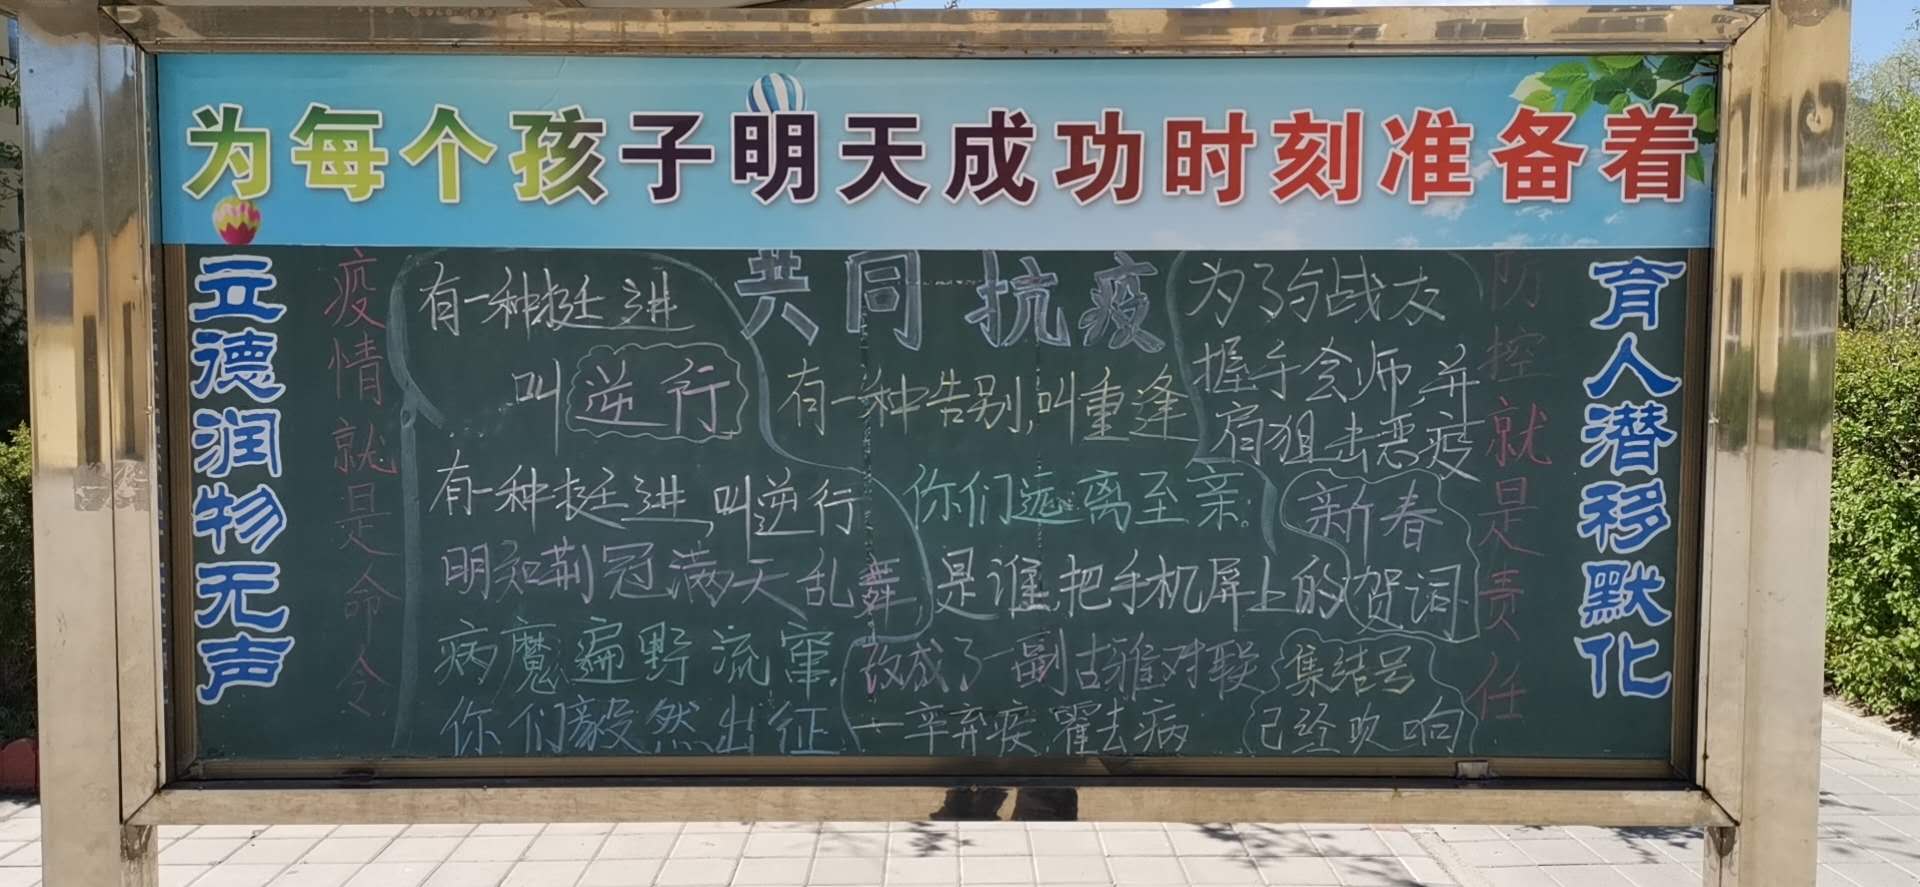 为每个孩子明天成功时刻准备着
立德润物无声
疫情就是命令
有一种挺进
叫逆行
有一种挺进,叫逆行
明知荆冠满天乱舞
病魔遍野流窜,
你们毅然出征
共同抗疫
有一种告别,叫重逢
你们远离至亲,
是谁,把手机屏上的
新春
贺词
改成了一副古雅对联
一辛弃疾,霍去病
为了与战友
握手会师,并
肩狙击恶疫
集结号
已经吹响
防控就是责任
育人潜移默化